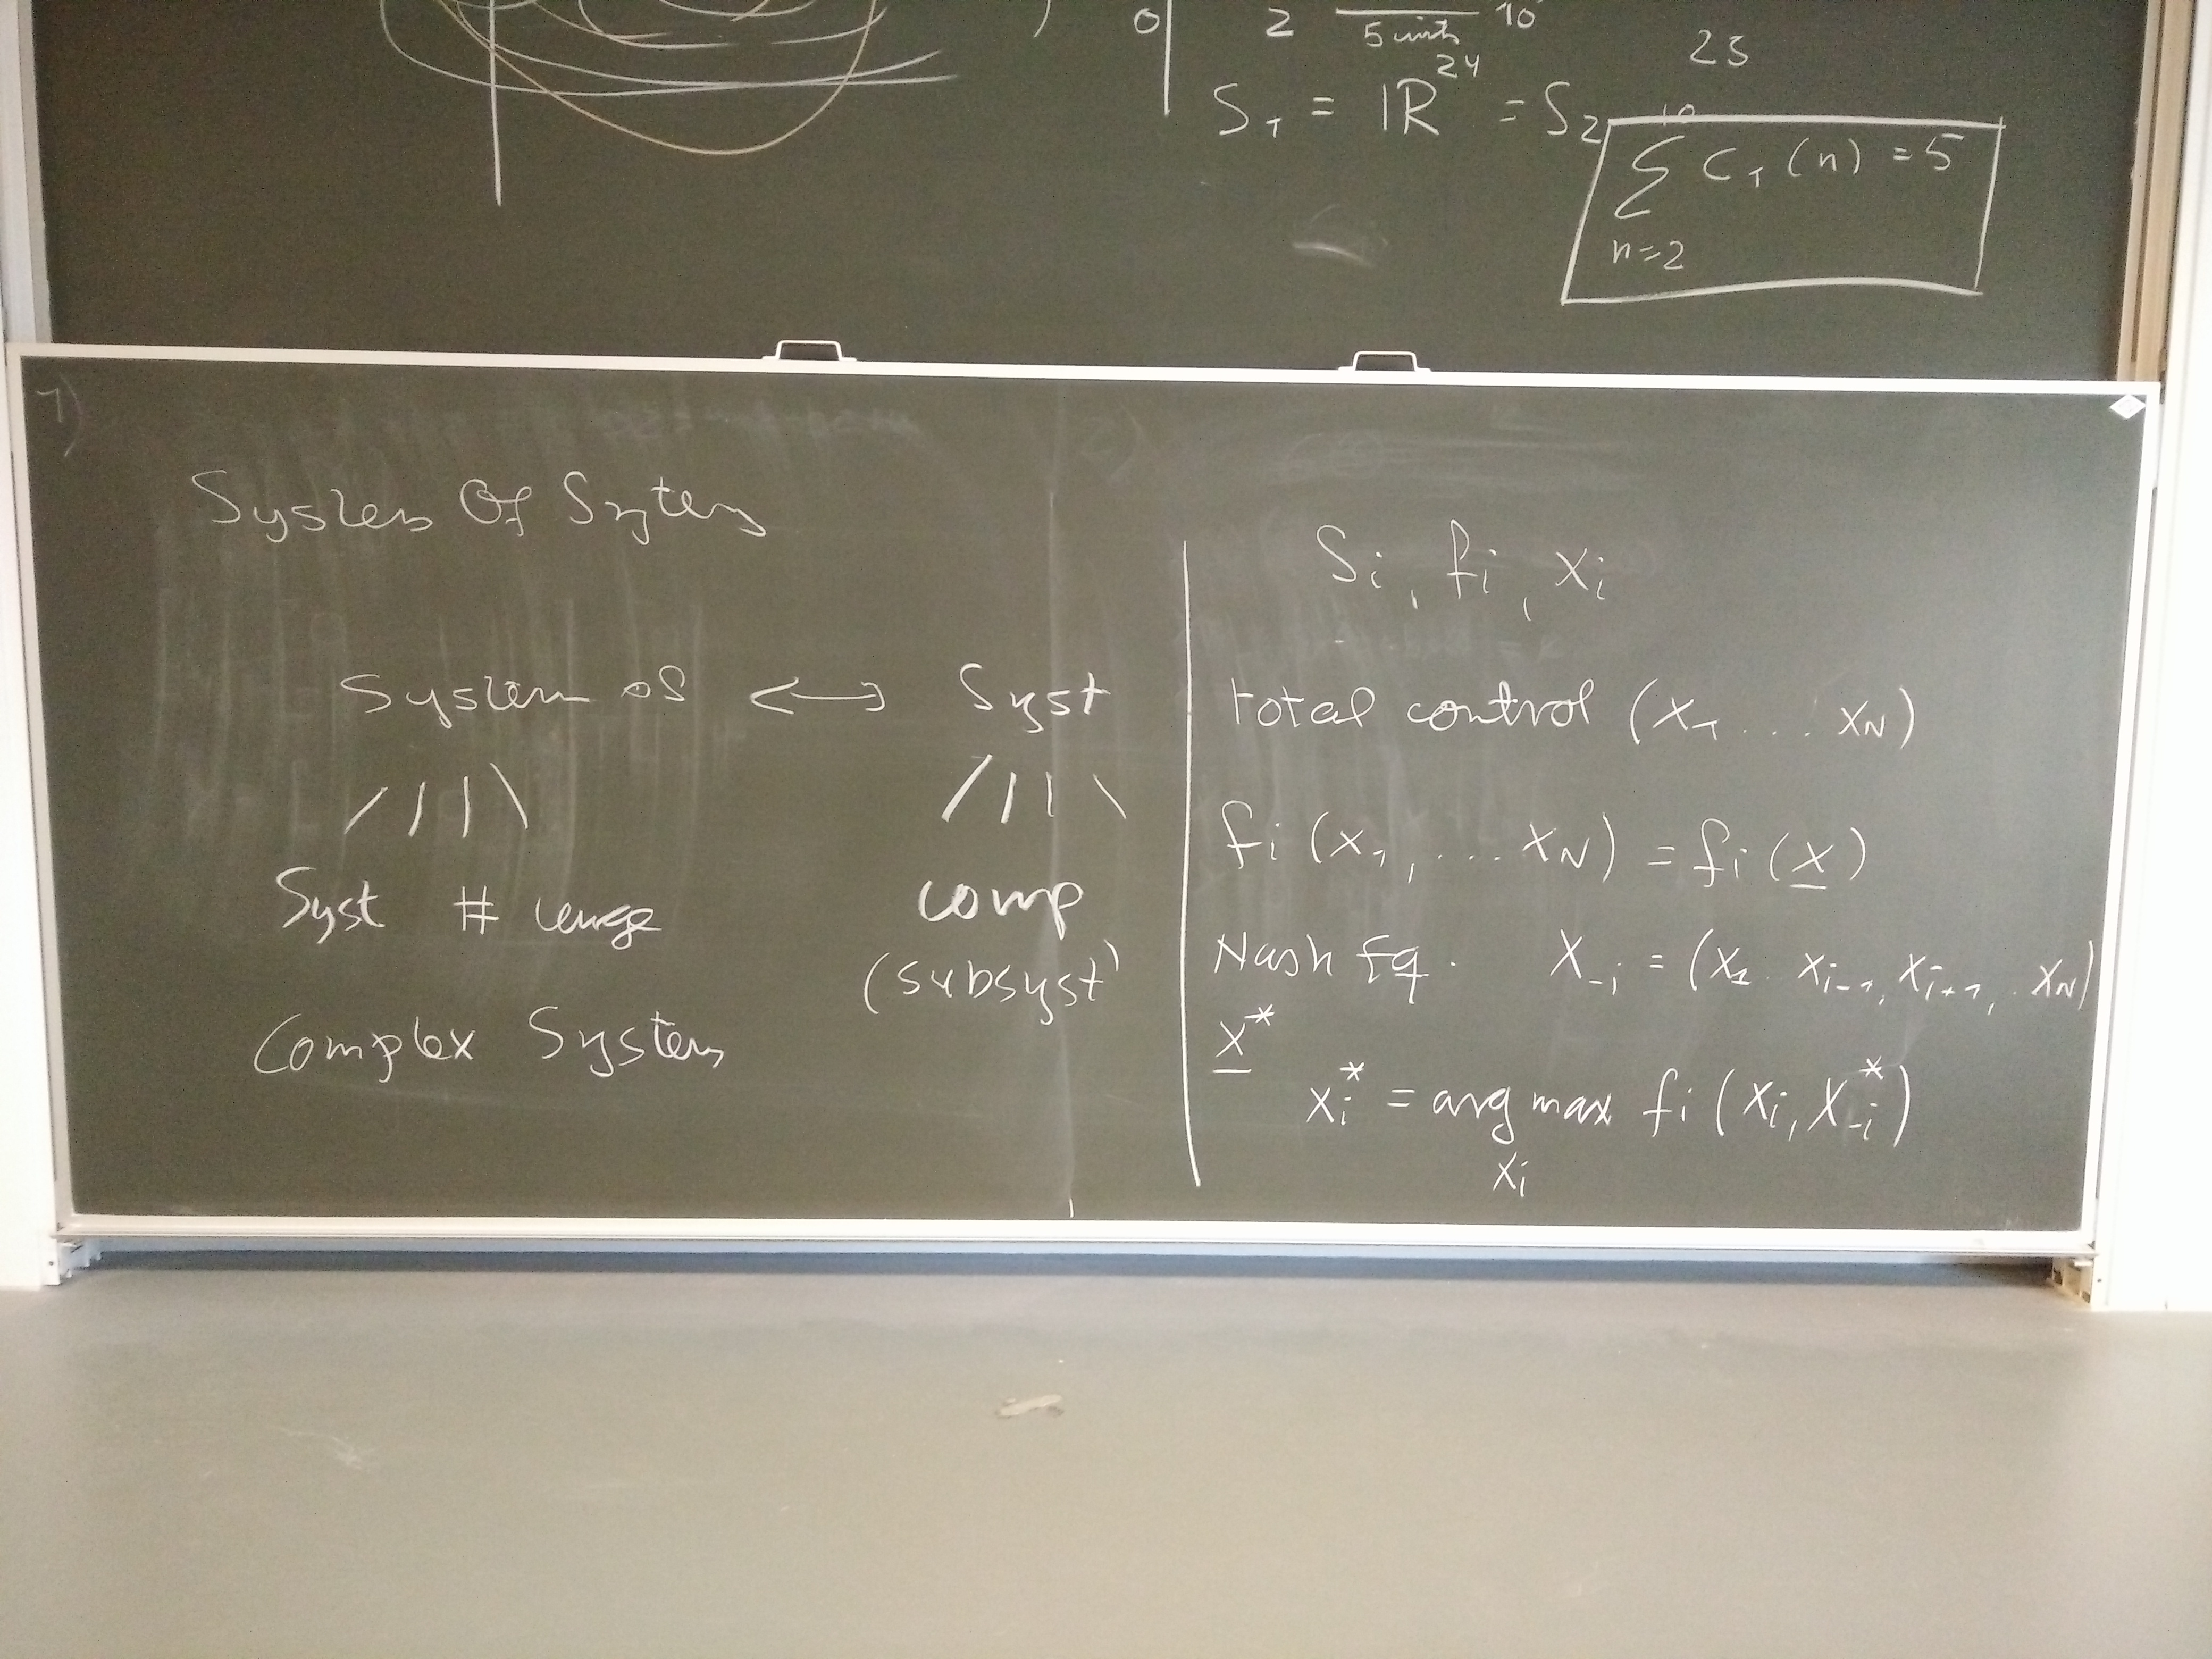 0 2 5 units 10 23
S₁ = ℝ²⁴ = S₂
10
∑ C₁(n) = 5
n=2
1)
System Of Sytems
System oS <—> Syst
/ / | \ / | | \
Syst # large comp
(subsyst)
Complex System
Sᵢ, fᵢ, xᵢ
total control (x₁ ... x_N)
fᵢ(x₁, ... x_N) = fᵢ(x̲)
Nash Eq. X₋ᵢ = (x₁ xᵢ₋₁, xᵢ₊₁, . x_N)
x̲*
xᵢ* = arg max fᵢ(xᵢ, X₋ᵢ*)
xᵢ